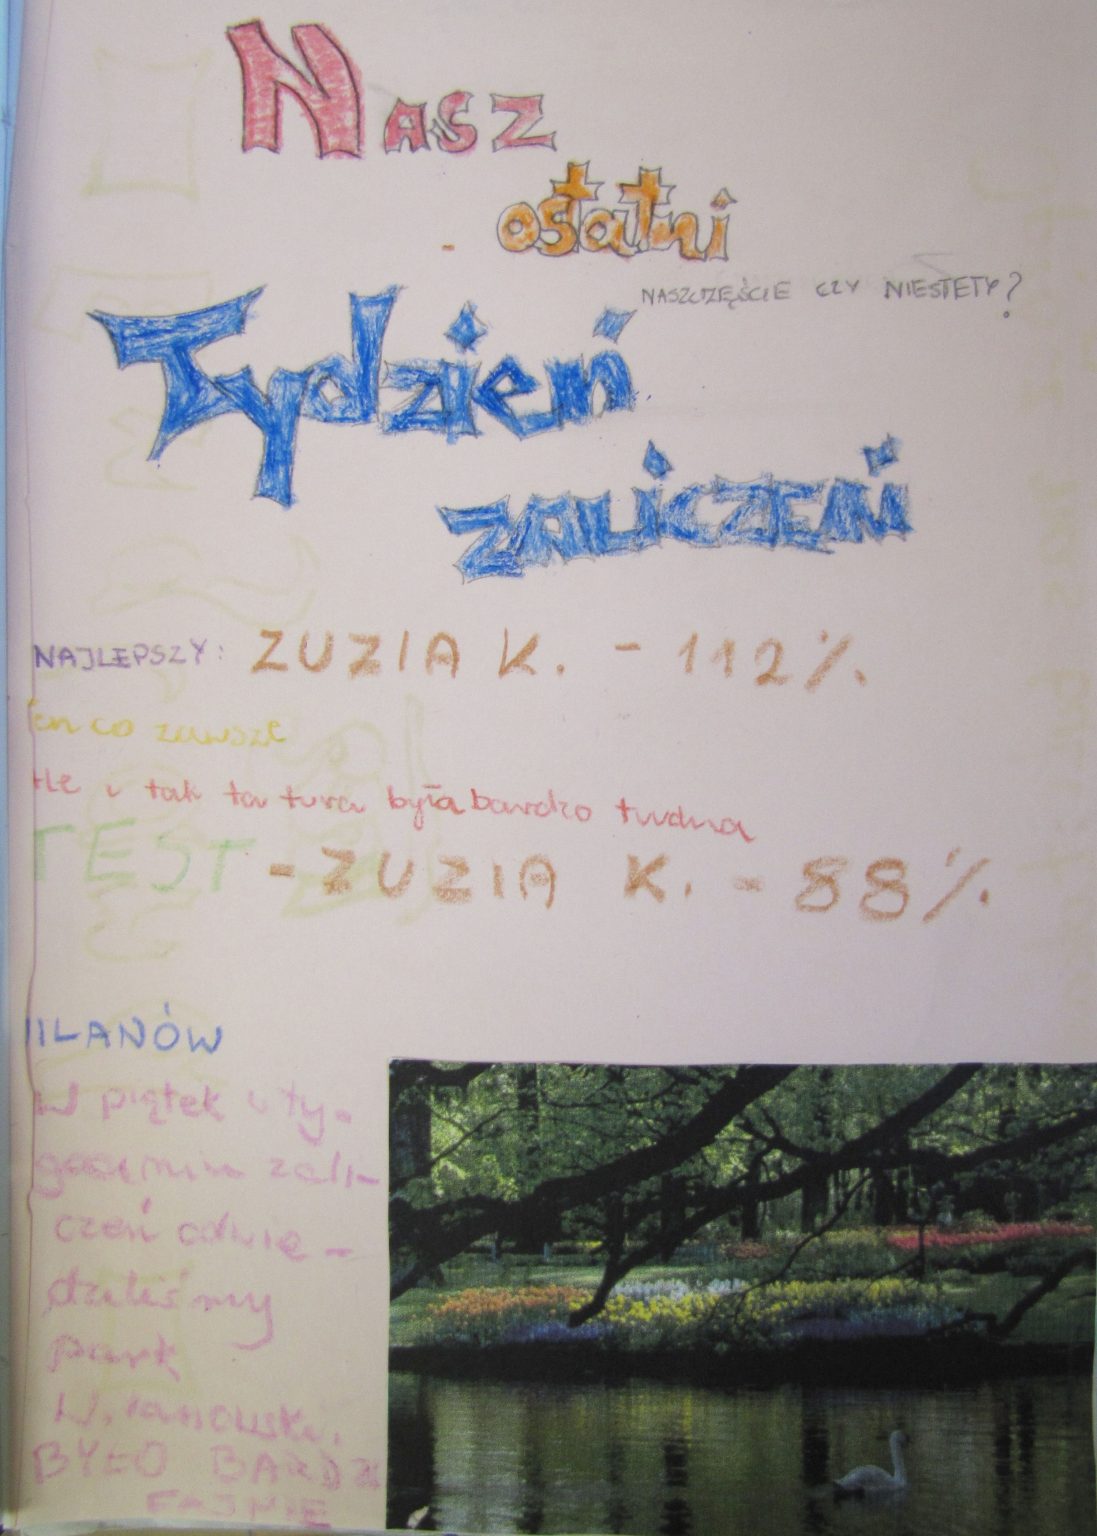 Nasz
ostatni
NASZCZĘŚCIE CZY NIESTETY?
Tydzień
zaliczeń
NAJLEPSZY: ZUZIA K. - 112%.
en co zawsze
le i tak ta tura była bardzo trudna
TEST - ZUZIA K. - 88%.
ILANÓW
W piątek w ty-
godniu zali-
czeń odwie-
dziliśmy
park
Wilanowski.
BYŁO BARDZ
FAJNIE